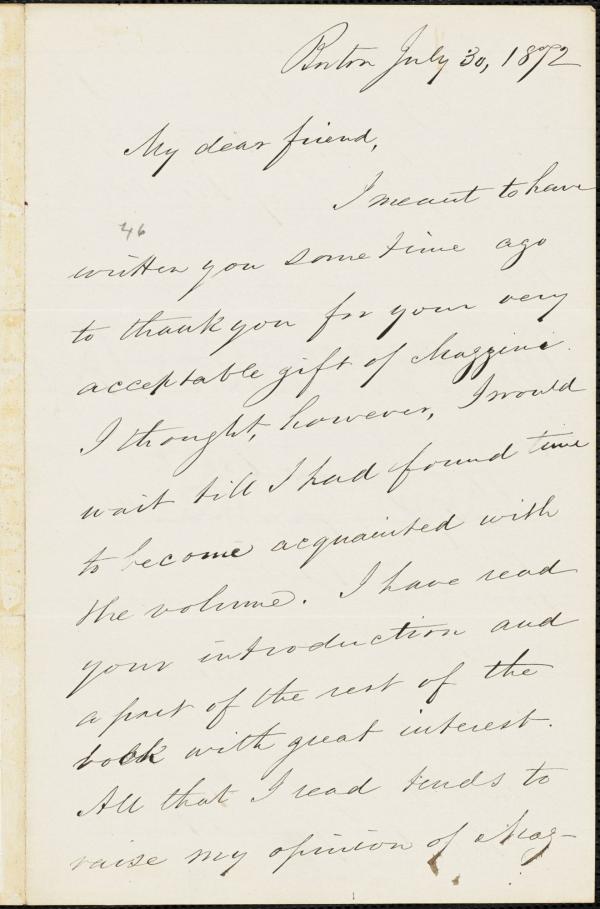 Boston July 30, 1872
My dear friend,
I meant to have
46
written you some time ago
to thank you for your very
acceptable gift of Mazzini.
I thought, however, I would
wait till I had found time
to become acquainted with
the volume. I have read
your introduction and
a part of the rest of the
book with great interest.
All that I read tends to
raise my opinion of Maz-